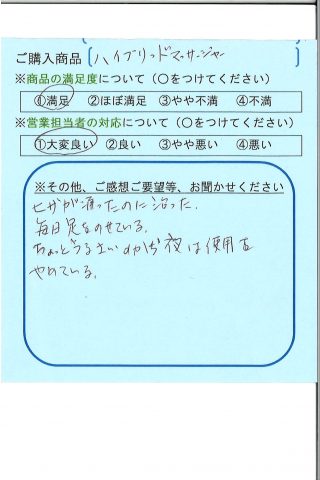 ご購入商品〔ハイブリッドマッサージャー〕
※商品の満足度について(○をつけてください)
①満足 ②ほぼ満足 ③やや不満 ④不満
※営業担当者の対応について(○をつけてください)
①大変良い ②良い ③やや悪い ④悪い
※その他、ご感想ご要望等、お聞かせください
ヒザが痛ったのに治った。
毎日足をのせている。
ちょっとうるさいから夜は使用を
やめている。